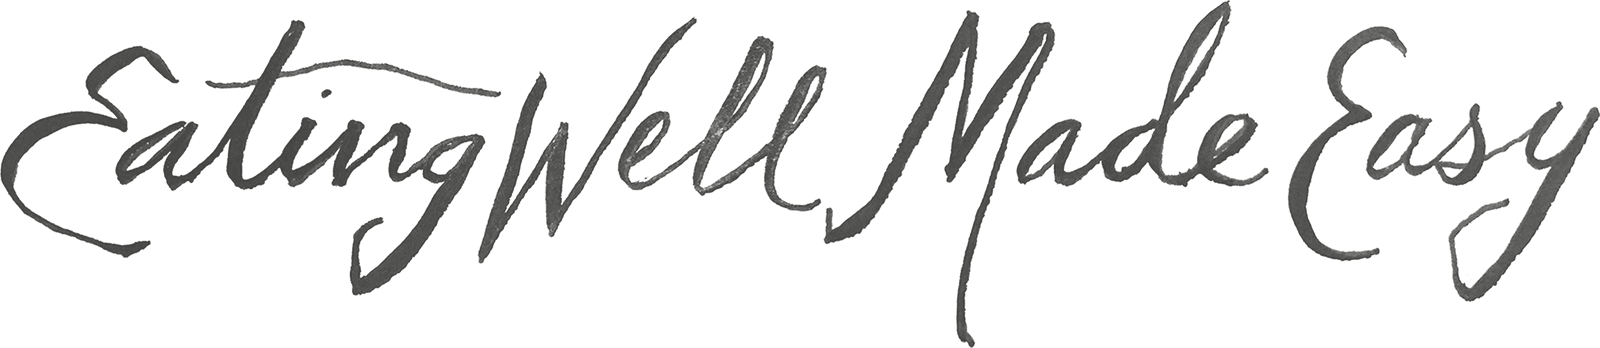 Eating Well Made Easy